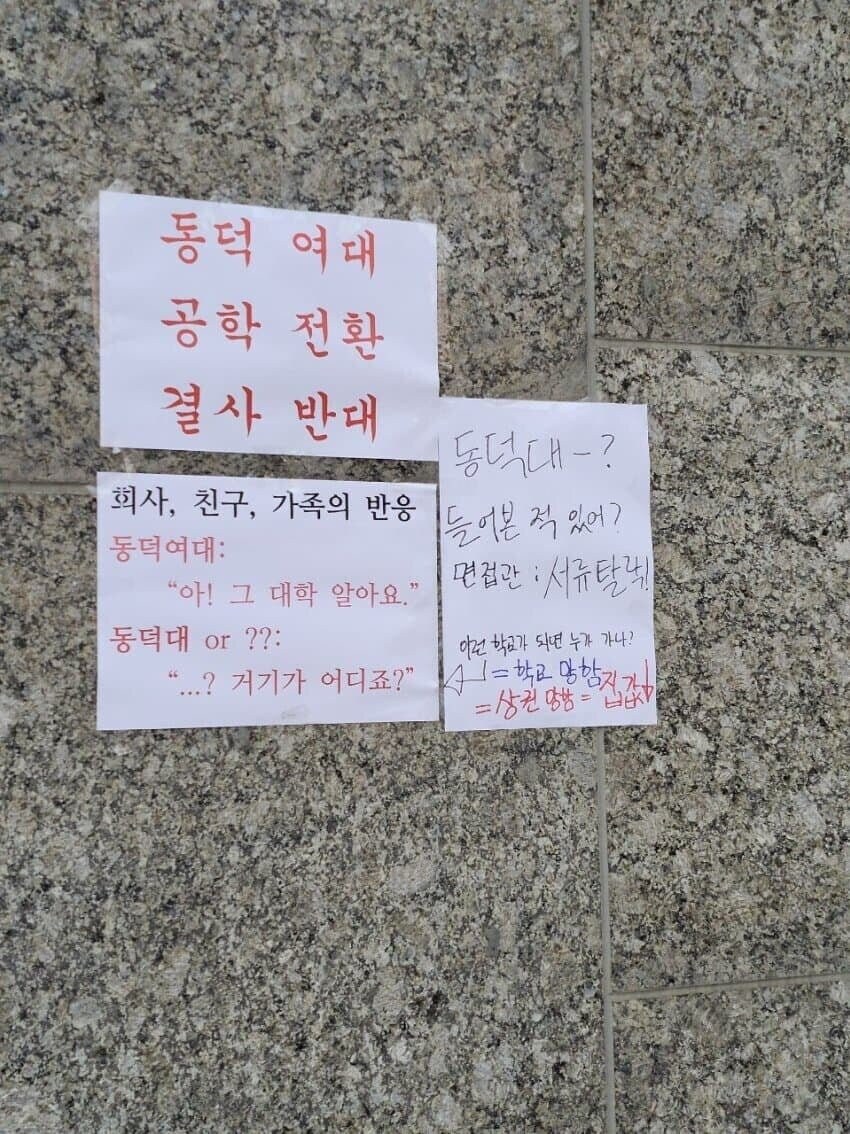 동덕 여대
공학 전환
결사 반대
회사, 친구, 가족의 반응
동덕여대:
“아! 그 대학 알아요.”
동덕대 or ??:
“...? 거기가 어디죠?”
동덕대 - ?
들어본 적 있어?
면접관 : 서류탈락!
이런 학교가 되면 누가 가나?
= 학교 망함
= 상권 망함 = 집값↓